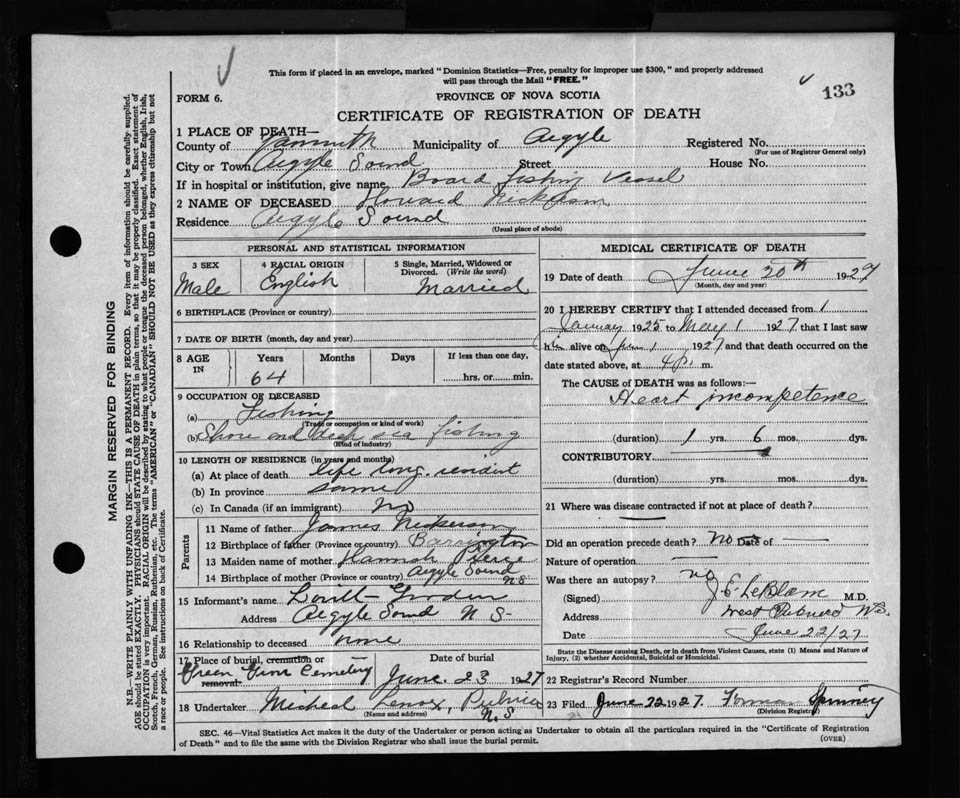 This form if placed in an envelope, marked "Dominion Statistics—Free, penalty for improper use $300," and properly addressed
will pass through the Mail "FREE."
133
FORM 6.
PROVINCE OF NOVA SCOTIA
CERTIFICATE OF REGISTRATION OF DEATH
1 PLACE OF DEATH—
County of Yarmouth Municipality of Argyle Registered No.
(For use of Registrar General only)
City or Town Argyle Sound Street House No.
If in hospital or institution, give name Board fishing Vessel
2 NAME OF DECEASED Howard
Residence Argyle Sound
(Usual place of abode)
PERSONAL AND STATISTICAL INFORMATION
3 SEX
Male
4 RACIAL ORIGIN
English
5 Single, Married, Widowed or
Divorced. (Write the word)
Married
6 BIRTHPLACE (Province or country)
7 DATE OF BIRTH (month, day and year)
8 AGE
IN
Years
64
Months
Days
If less than one day,
hrs. or min.
9 OCCUPATION OF DECEASED
(a) Fishing
(Trade or occupation or kind of work)
(b) Shore and deep sea fishing
(Kind of industry)
10 LENGTH OF RESIDENCE (in years and months)
(a) At place of death life long resident
(b) In province same
(c) In Canada (if an immigrant) no
Parents
11 Name of father James Nickerson
12 Birthplace of father (Province or country) Barrington
13 Maiden name of mother Hannah
14 Birthplace of mother (Province or country) Argyle Sound
NS
15 Informant's name
Address Argyle Sound N S
16 Relationship to deceased none
17 Place of burial, cremation or
removal. Cemetery
Date of burial
June 23 1927
18 Undertaker Micheal Pubnico
N.S
(Name and address)
MEDICAL CERTIFICATE OF DEATH
19 Date of death June 20th 1927
(Month, day and year)
20 I HEREBY CERTIFY that I attended deceased from 1
January 1925 to May 1 1927 that I last saw
him alive on June 1 1927 and that death occurred on the
date stated above, at 4 p. m.
The CAUSE of DEATH was as follows:—
Heart incompetence
(duration) 1 yrs. 6 mos. dys.
CONTRIBUTORY
(duration) yrs. mos. dys.
21 Where was disease contracted if not at place of death?
Did an operation precede death? No Date of
Nature of operation
Was there an autopsy? no
(Signed) J E LeBlanc M.D.
Address West Pubnico N.S.
Date June 22/27
State the Disease Causing Death, or in death from Violent Causes, state (1) Means and Nature of
Injury, (2) whether Accidental, Suicidal or Homicidal.
22 Registrar's Record Number
23 Filed June 22 1927. Spinney
(Division Registrar)
SEC. 46—Vital Statistics Act makes it the duty of the Undertaker or person acting as Undertaker to obtain all the particulars required in the "Certificate of Registration
of Death" and to file the same with the Division Registrar who shall issue the burial permit.
(OVER)
MARGIN RESERVED FOR BINDING
N.B.—WRITE PLAINLY WITH UNFADING INK—THIS IS A PERMANENT RECORD. Every item of information should be carefully supplied.
AGE should be stated EXACTLY. PHYSICIANS should STATE CAUSE OF DEATH in plain terms, so that it may be properly classified. Exact statement of
OCCUPATION is very important. RACIAL ORIGIN will be described by stating to what people or tongue the deceased person belonged, whether English, Irish,
Scotch, French, German, Russian, Ruthenian, etc. The terms "AMERICAN" or "CANADIAN" SHOULD NOT BE USED as they express citizenship but not
a race or people. See instructions on back of Certificate.